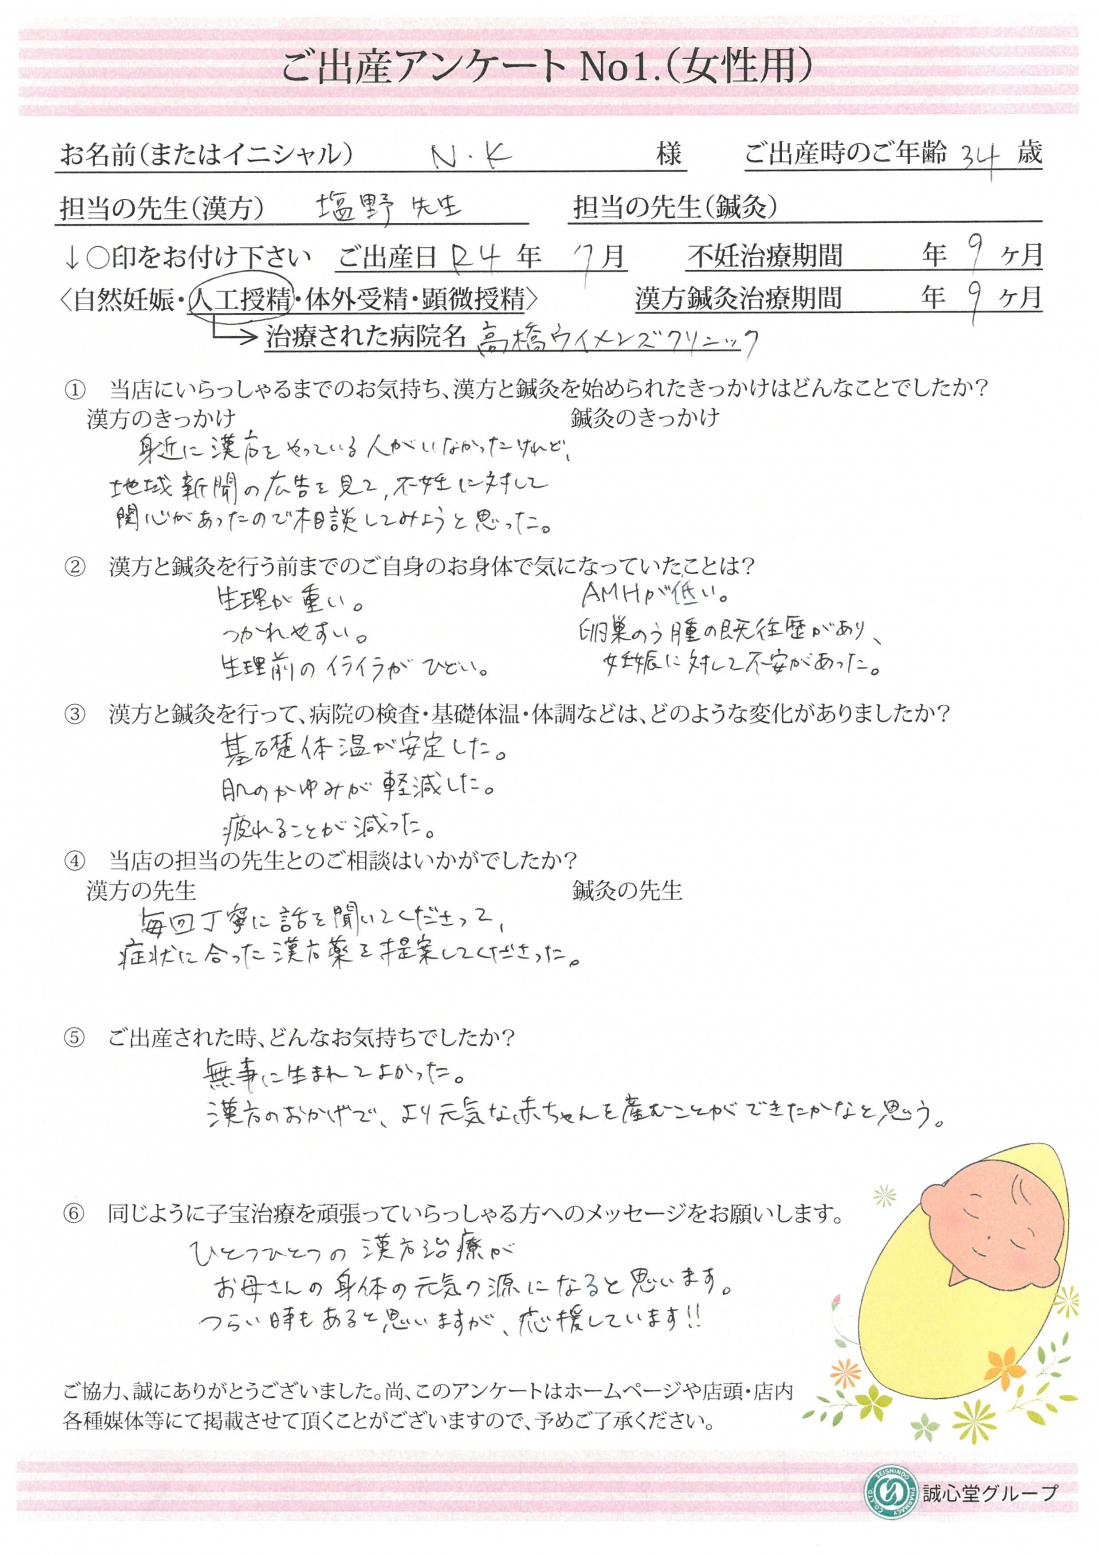 ご出産アンケート No1.(女性用)
お名前(またはイニシャル) N.K 様 ご出産時のご年齢 34 歳
担当の先生(漢方) 塩野 先生 担当の先生(鍼灸)
↓○印をお付け下さい ご出産日 R4 年 7月 不妊治療期間 年 9 ヶ月
〈自然妊娠・人工授精・体外受精・顕微授精〉 漢方鍼灸治療期間 年 9 ヶ月
治療された病院名 高橋ウイメンズクリニック
① 当店にいらっしゃるまでのお気持ち、漢方と鍼灸を始められたきっかけはどんなことでしたか?
漢方のきっかけ 鍼灸のきっかけ
身近に漢方をやっている人がいなかったけれど、
地域新聞の広告を見て、不妊に対して
関心があったので相談してみようと思った。
② 漢方と鍼灸を行う前までのご自身のお身体で気になっていたことは?
生理が重い。 AMHが低い。
つかれやすい。 卵巣のう腫の既往歴があり、
生理前のイライラがひどい。 妊娠に対して不安があった。
③ 漢方と鍼灸を行って、病院の検査・基礎体温・体調などは、どのような変化がありましたか?
基礎体温が安定した。
肌のかゆみが軽減した。
疲れることが減った。
④ 当店の担当の先生とのご相談はいかがでしたか?
漢方の先生 鍼灸の先生
毎回丁寧に話を聞いてくださって、
症状に合った漢方薬を提案してくださった。
⑤ ご出産された時、どんなお気持ちでしたか?
無事に生まれてよかった。
漢方のおかげで、より元気な赤ちゃんを産むことができたかなと思う。
⑥ 同じように子宝治療を頑張っていらっしゃる方へのメッセージをお願いします。
ひとつひとつの漢方治療が
お母さんの身体の元気の源になると思います。
つらい時もあると思いますが、応援しています!!
ご協力、誠にありがとうございました。尚、このアンケートはホームページや店頭・店内
各種媒体等にて掲載させて頂くことがございますので、予めご了承ください。
SEISHINDO PHARMACY CO.,LTD.
誠心堂グループ